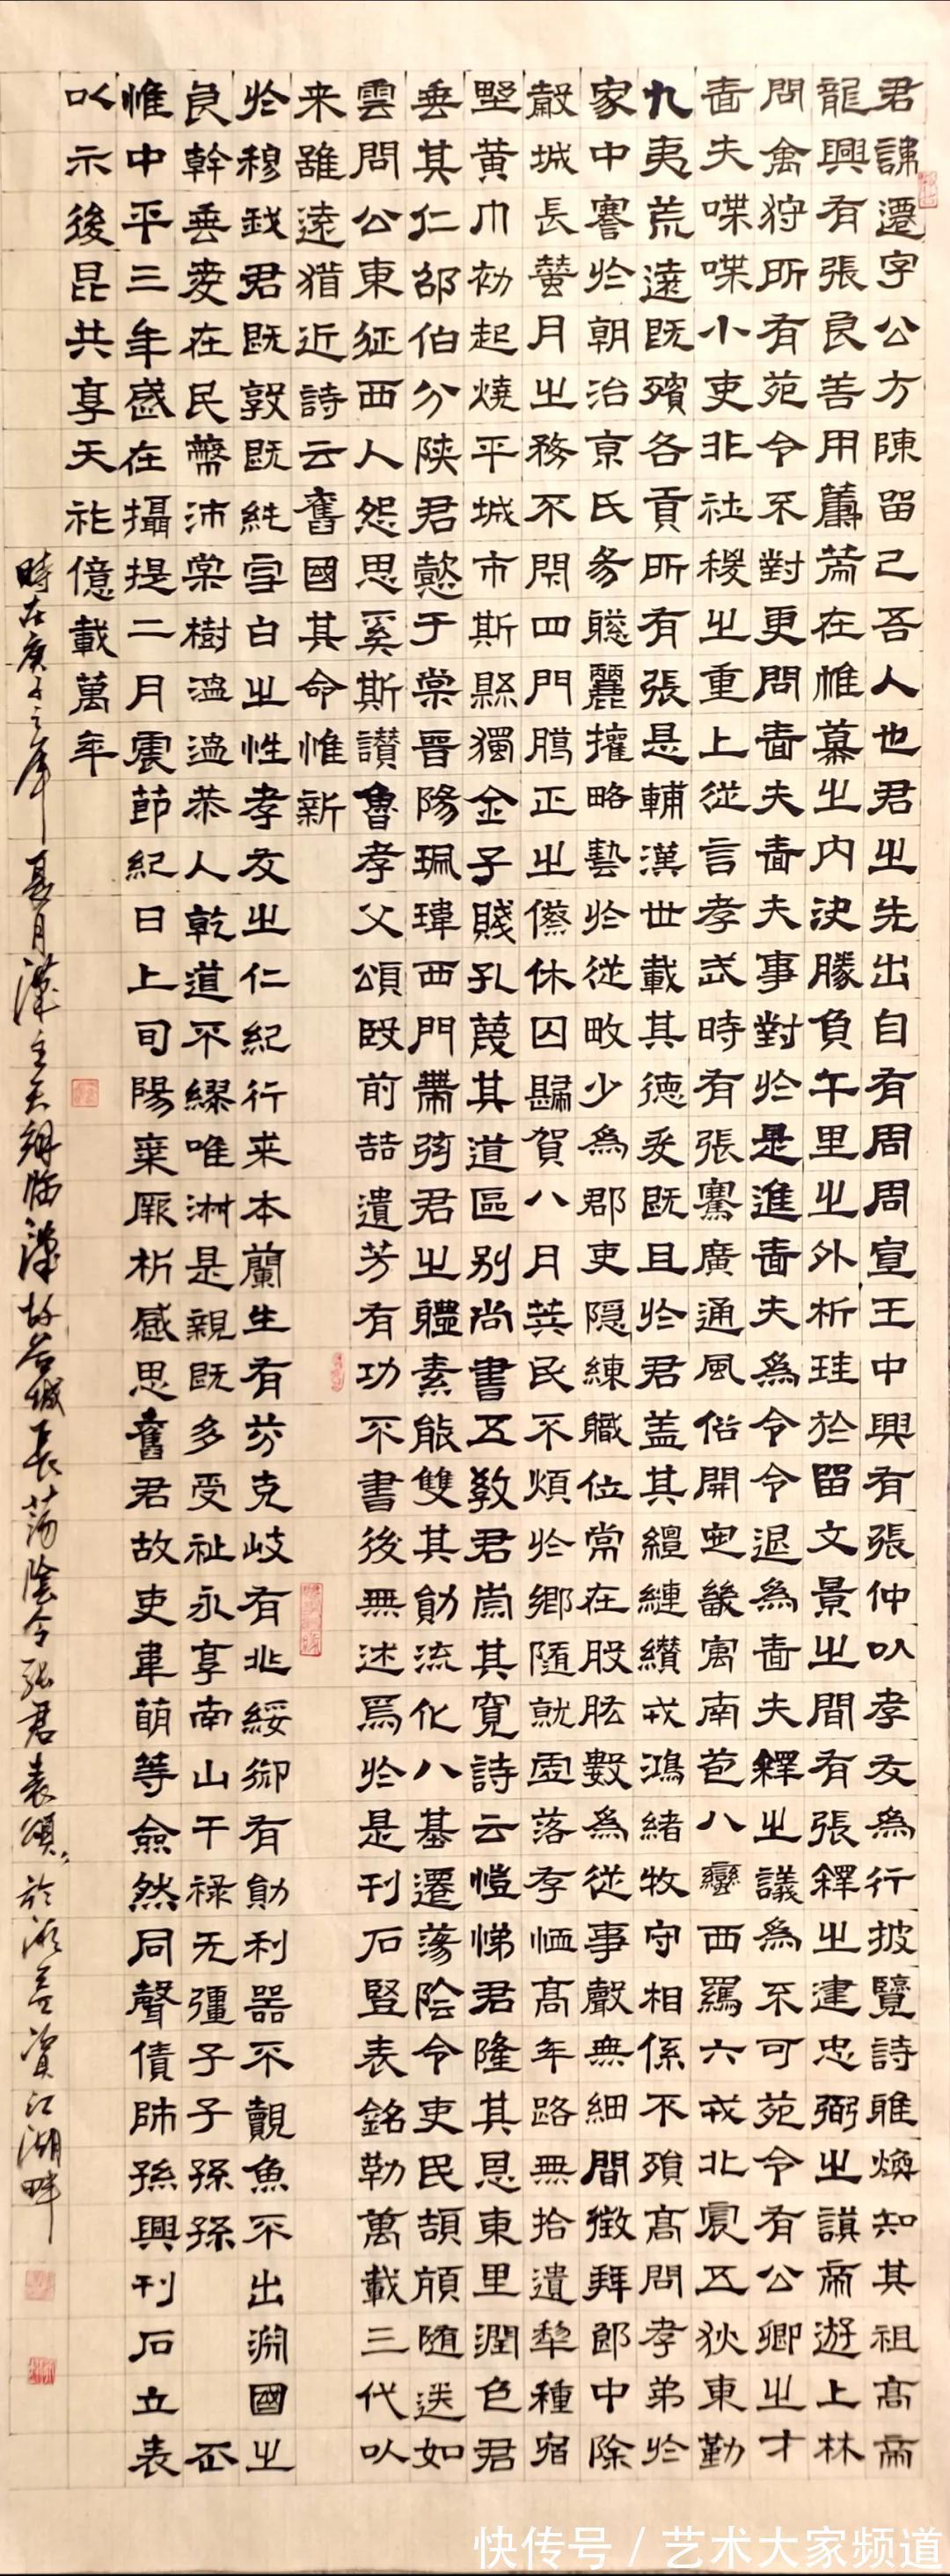 君諱遷字公方陳留己吾人也君之先出自有周周宣王中興有張仲以孝友為行披覽詩雅煥知其祖高帝
龍興有張良善用籌策在帷幕之内決勝負千里之外析珪於留文景之間有張釋之建忠弼之謨帝遊上林
問禽狩所有苑令不對更問嗇夫嗇夫事對於是進嗇夫為令令退為嗇夫釋之議為不可苑令有公卿之才
嗇夫喋喋小吏非社稷之重上從言孝武時有張騫廣通風俗開定畿寓南苞八蠻西羈六戎北震五狄東勤
九夷荒遠既殯各貢所有張是輔漢世載其德爰既且於君盖其繵縺纘戎鴻緒牧守相係不殞高問孝弟於
家中謇於朝治京氏易聰麗權略藝於從畋少為郡吏隱練職位常在股肱數為從事聲無細聞徵拜郎中除
穀城長蠶月之務不閉四門臘正之僚休囚歸賀八月筭民不煩於鄉隨就虛落存恤高年路無拾遺犂種宿
野黃巾初起燒平城市斯縣獨全子賤孔蔑其道區别尚書五教君崇其寬詩云愷悌君隆其恩東里潤色君
垂其仁邵伯分陝君懿于棠晉陽珮瑋西門帶弦君之體素能雙其勛流化八基遷蕩陰令吏民頡頏隨送如
雲問公東征西人怨思奚斯讃魯孝父頌殷前喆遺芳有功不書後無述焉於是刊石豎表銘勒萬載三代以
来雖遠猶近詩云舊國其命惟新
於穆我君既敦既純雪白之性孝友之仁紀行来本蘭生有芬克岐有兆綏御有勛利器不覿魚不出淵國之
良幹垂愛在民蔽沛棠樹温温恭人乾道不繆唯淑是親既多受祉永享南山干禄无疆子子孫孫
惟中平三年歲在攝提二月震節紀日上旬陽氣厥析感思舊君故吏韋萌等僉然同聲債師孫興刊石立表
以示後昆共享天祚億載萬年
時在庚子之年夏月漢主天翔臨漢故谷城長蕩陰令張君表頌於資江湖畔
快传号/艺术大家频道